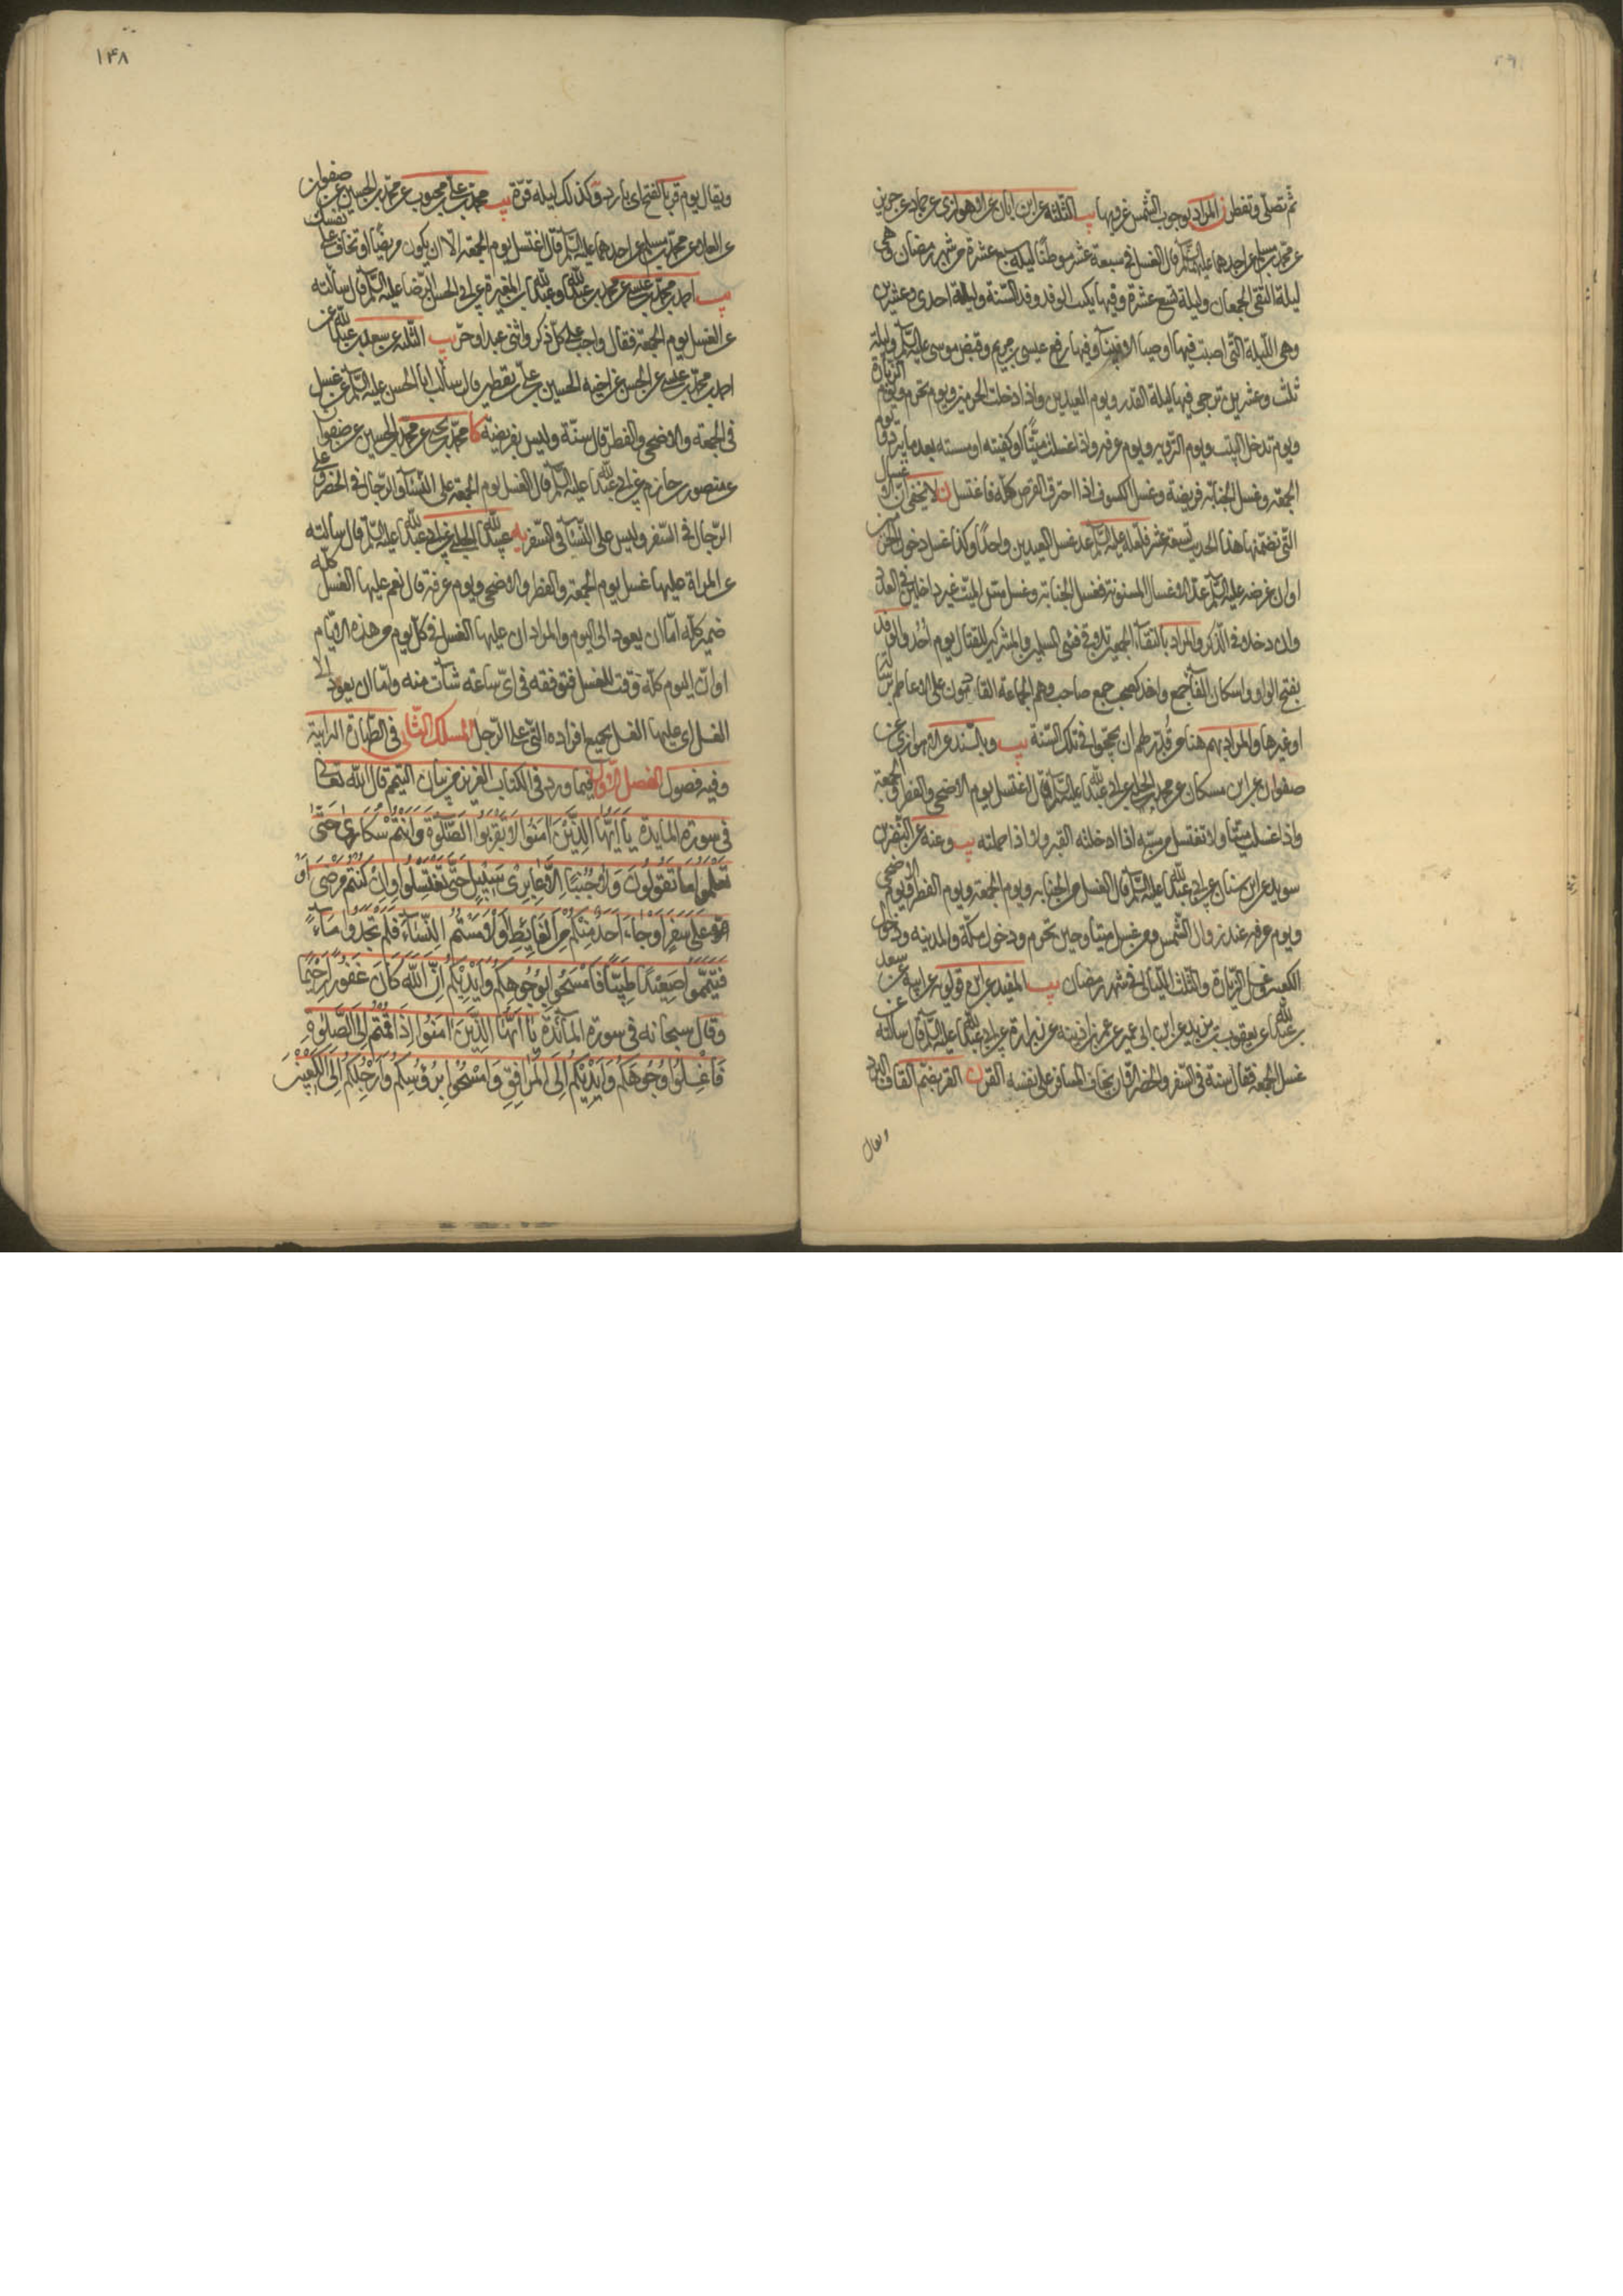 ثم تصلى وتفطر ن المراد بوجوب الشمس غروبها يب الثلثه عن ابن ابان عن الاهوازى عن حماد عن حريز
عن محمد بن مسلم عن احدهما عليهما السلم قال الغسل فى سبعة عشر موطنا ليلة سبع عشرة من شهر رمضان وهى
ليلة التقى الجمعان وليلة تسع عشرة وفيها يكتب الوفد وفد السنة وليلة احدى وعشرين
وهى الليلة التى اصيبت فيها اوصيا الانبيآء وفيها رفع عيسى بن مريم وقبض موسى عليه السلم وليلة
ثلث وعشرين ترجى فيها ليلة القدر ويوم العيدين واذا دخلت الحرمين ويوم تحرم ويوم الزيارة
ويوم تدخل البيت ويوم التروية ويوم عرفه واذا غسلت ميتا او كفنته او مسسته بعد ما يبرد ويوم
الجمعه وغسل الجنابه فريضة وغسل الكسوف اذا احترق القرص كله فاغتسل ن لا يخفى ان الاغسال
التى تضمنها هذا الحديث تسعة عشر فلعله عليه السلم عد غسل العيدين واحدا وكذا غسل دخول الحرمين
او ان غرضه عليه السلم عد الاغسال المسنونة فغسل الجنابة وغسل مس الميت غير داخلين فى العدد
وان دخلا فى الذكر والمراد بالتقآء الجمعين تلاقى فئتى المسلمين والمشركين للقتال يوم احد والوفد
بفتح الواو واسكان الفآء جمع وافد كصحب جمع صاحب وهم الجماعة القادمون على الاعاظم برسالة
او غيرها والمراد بهم هنا من قدر لهم ان يحجوا فى تلك السنة يب وبالسند عن الاهوازى عن
صفوان عن ابن مسكان عن محمد الحلبى عن ابى عبدالله عليه السلم قال اغتسل يوم الاضحى والفطر والجمعة
واذا غسلت ميتا ولا تغتسل من مسه اذا ادخلته القبر ولا اذا حملته يب وعنه عن النضر بن
سويد عن ابن سنان عن ابى عبدالله عليه السلم قال الغسل من الجنابه ويوم الجمعه ويوم الفطر ويوم الاضحى
ويوم عرفه عند زوال الشمس ومن غسل ميتا وحين تحرم ودخول مكة والمدينه ودخول
الكعبه وغسل الزيارة والثلث الليالى فى شهر رمضان يب المفيد عن ابن قولويه عن ابيه عن سعد
بن عبدالله عن يعقوب بن يزيد عن ابن ابى عمير عن عمر بن اذينه عن زرارة عن ابى عبدالله عليه السلم قال سالته عن
غسل الجمعه فقال سنة فى السفر والحضر الا ان يخاف المسافر على نفسه القر ن القر بضم القاف البرد
ويقال
١٤٨
ويقال يوم قر بالفتح اى بارد وكذلك ليله قرة يب محمد بن على بن محبوب عن محمد بن الحسين عن صفوان
عن العلاء عن محمد بن مسلم عن احدهما عليه السلم قال اغتسل يوم الجمعه الا ان يكون مريضا او تخاف على نفسك
يب احمد بن محمد بن عيسى عن محمد بن عبدالله وعبدالله بن المغيرة عن ابى الحسن الرضا عليه السلم قال سالته
عن الغسل يوم الجمعة فقال واجب على كل ذكر وانثى عبد او حر يب الثلثه عن سعد بن عبدالله عن
احمد بن محمد بن عيسى عن الحسن عن اخيه الحسين بن على بن يقطين قال سالت ابا الحسن عليه السلم عن غسل
فى الجمعه والاضحى والفطر قال سنة وليس بفريضة كا محمد بن يحيى عن محمد بن الحسين عن صفوان
عن منصور بن حازم عن ابى عبدالله عليه السلم قال الغسل يوم الجمعة على النسآء والرجال فى الحضر وعلى
الرجال فى السفر وليس على النسآء فى السفر يه عبيدالله الحلبى عن ابى عبدالله عليه السلم قال سالته
عن المراة عليها غسل يوم الجمعة والفطر والاضحى ويوم عرفة قال نعم عليها الغسل كله
ضمير كله اما ان يعود الى اليوم والمراد ان عليها الغسل فى كل يوم من هذه الايام
او ان اليوم كله وقت للغسل فتوقعه فى اى ساعة شآءت منه واما ان يعود الى
الغسل اى عليها الغسل بجميع افراده التى على الرجل المسلك الثانى فى الطهارة الترابية
وفيه فصول الفصل الاول فيما ورد فى الكتاب العزيز من بيان التيمم قال الله تعالى
فى سورة المايدة يَا اَيُّهَا الَّذِينَ اٰمَنُوا لَا تَقْرَبُوا الصَّلٰوةَ وَاَنْتُمْ سُكَارٰى حَتّٰى
تَعْلَمُوا مَا تَقُولُونَ وَلَا جُنُبًا اِلَّا عَابِرِى سَبِيلٍ حَتّٰى تَغْتَسِلُوا وَاِنْ كُنْتُمْ مَرْضٰى اَوْ
عَلٰى سَفَرٍ اَوْ جَاءَ اَحَدٌ مِنْكُمْ مِنَ الْغَائِطِ اَوْ لَامَسْتُمُ النِّسَاءَ فَلَمْ تَجِدُوا مَاءً
فَتَيَمَّمُوا صَعِيدًا طَيِّبًا فَامْسَحُوا بِوُجُوهِكُمْ وَاَيْدِيكُمْ اِنَّ اللّٰهَ كَانَ غَفُورًا رَحِيمًا
وقال سبحانه فى سورة المآئدة يَا اَيُّهَا الَّذِينَ اٰمَنُوا اِذَا قُمْتُمْ اِلَى الصَّلٰوةِ
فَاغْسِلُوا وُجُوهَكُمْ وَاَيْدِيَكُمْ اِلَى الْمَرَافِقِ وَامْسَحُوا بِرُؤُسِكُمْ وَاَرْجُلَكُمْ اِلَى الْكَعْبَيْنِ